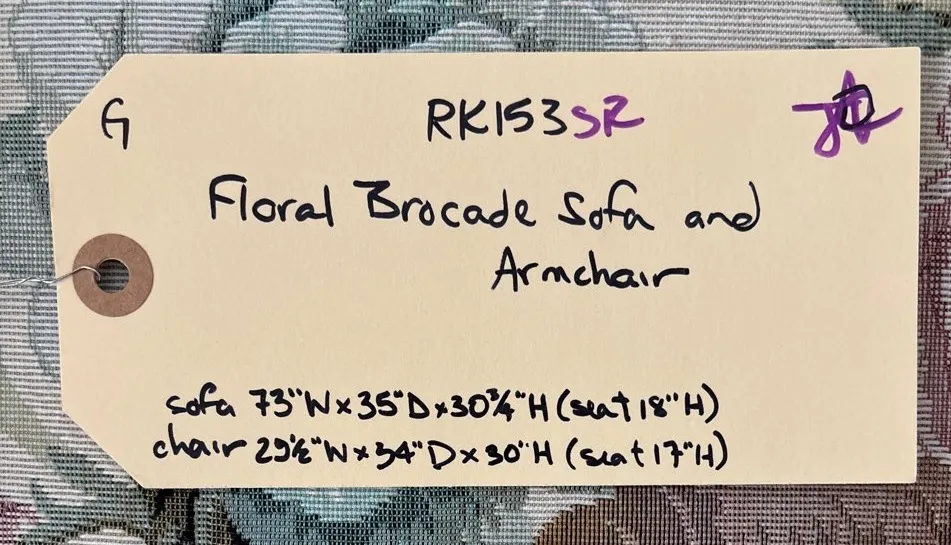 G
RK153SR
Floral Brocade Sofa and
Armchair
sofa 73"W x 35"D x 30¾"H (seat 18"H)
chair 29½"W x 34"D x 30"H (seat 17"H)